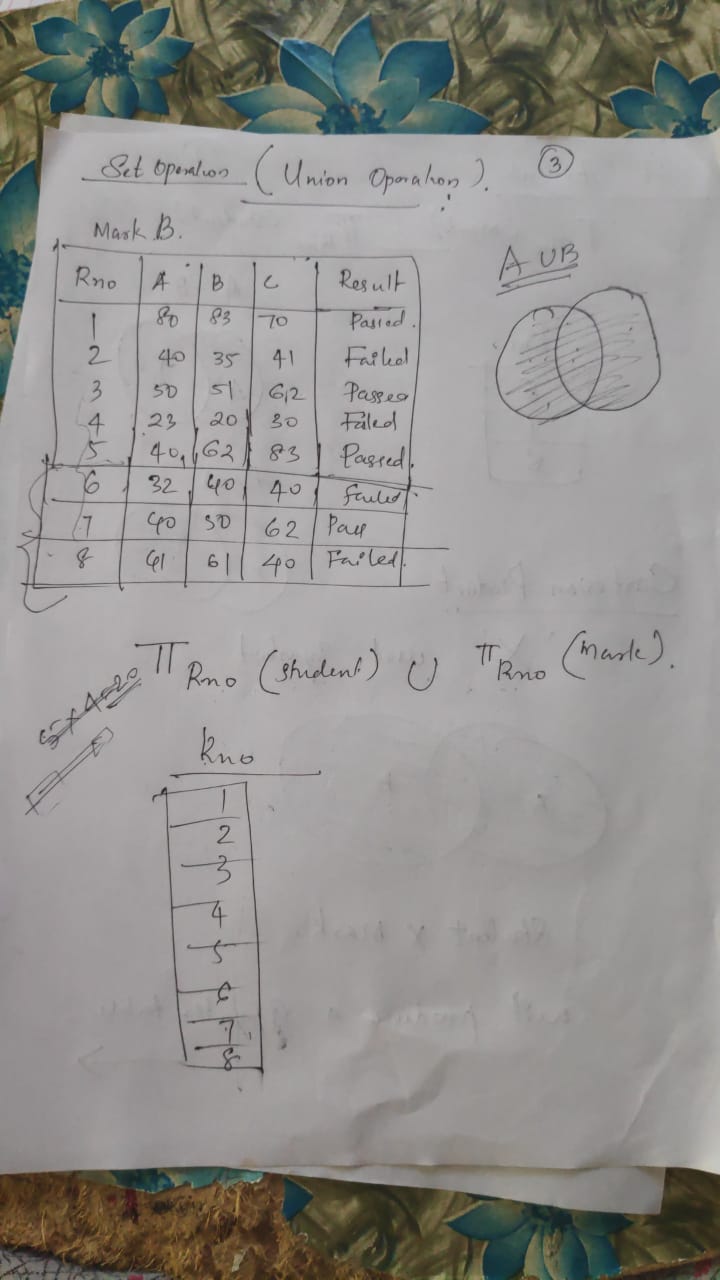 Set Operation (Union Operation). 3
Mark B.
A ∪ B
Rno A B C Result
1 80 83 70 Passed.
2 40 35 41 Failed
3 50 51 62 Passed
4 23 20 30 Failed
5 40 62 83 Passed.
6 32 40 40 failed
7 40 50 62 Pass
8 41 61 40 Failed.
π Rno (student) ∪ π Rno (mark).
5×4=20
Rno
1
2
3
4
5
6
7
8